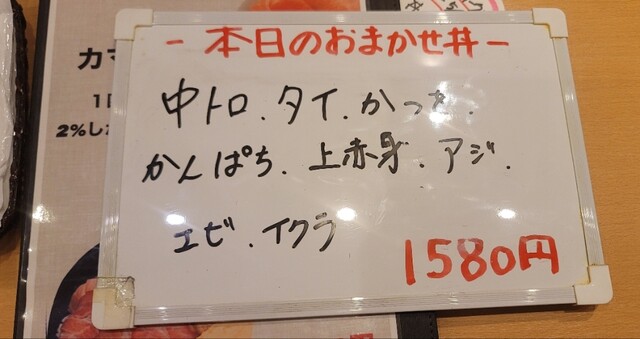 カマ
2%し
- 本日のおまかせ丼 -
中トロ.タイ.かつを.
かんぱち.上赤身.アジ.
エビ.イクラ
1580円